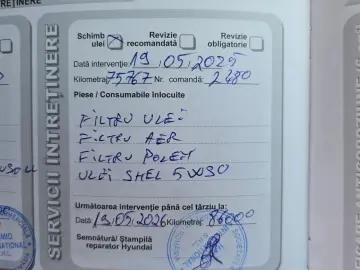 SERVICII INTREȚINERE
Schimb ulei
Revizie recomandată
Revizie obligatorie
Dată intervenție 19.05.2025
Kilometraj 75767 Nr. comandă: 2280
Piese / Consumabile înlocuite
FILTRU ULEI
FILTRU AER
FILTRU POLEN
ULEI SHEL 5W30
Următoarea intervenție până cel târziu la:
Dată 19.05.2026 Kilometraj:
Semnătură/ Ștampilă
reparator Hyundai